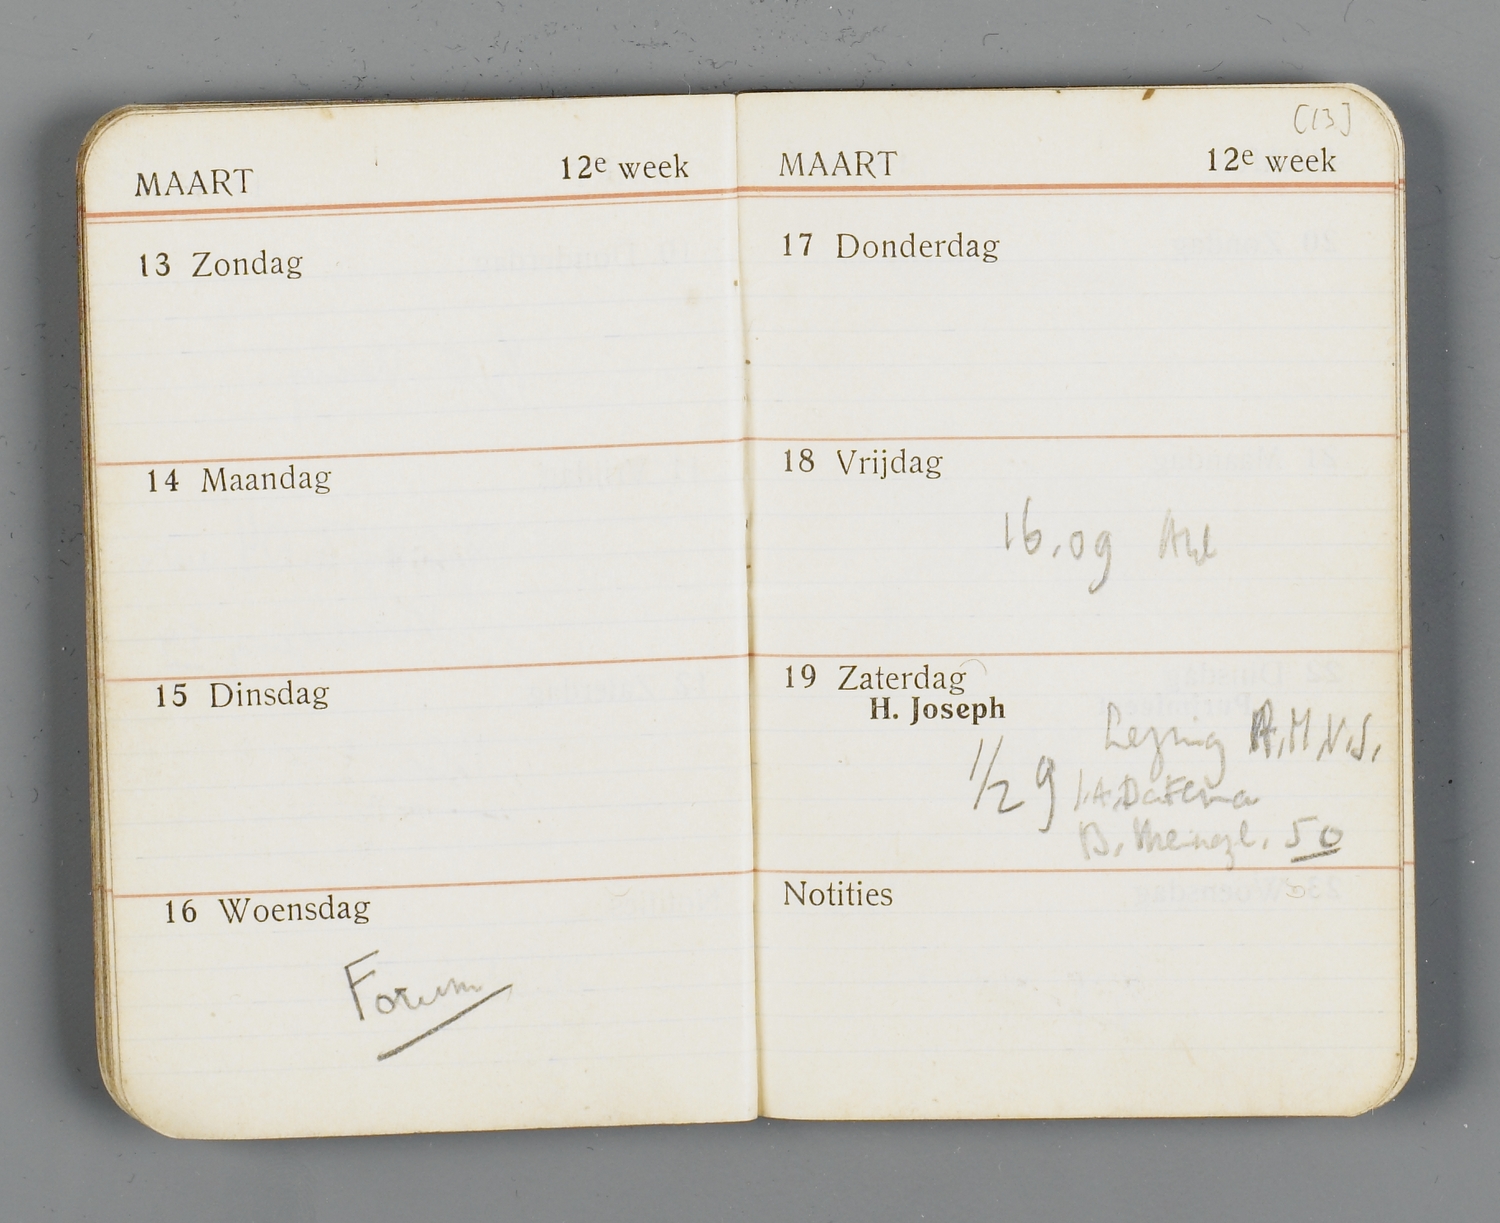 MAART 12e week
13 Zondag
14 Maandag
15 Dinsdag
16 Woensdag
Forum
[13]
MAART 12e week
17 Donderdag
18 Vrijdag
16.09
19 Zaterdag
H. Joseph
Lezing A.M.V.J.
1/2 9 J.A. Datema
B. 50
Notities